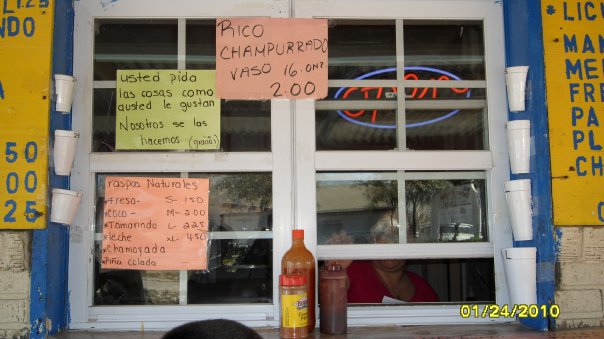 1.25
NDO
50
00
25
RICO
CHAMPURRADO
VASO 16. onz.
2.00
usted pida
las cosas como
austed le gustan
Nosotros se las
hacemos (gracias)
raspas Naturales
*Fresa- S- 150
*COCO- M- 2.00
*Tamarindo L- 2.25
*Leche XL- 450
*Chamoyada
*Piña colada
OPEN
* LICU
MAN
ME
FRE
PA
PL
CH
01/24/2010